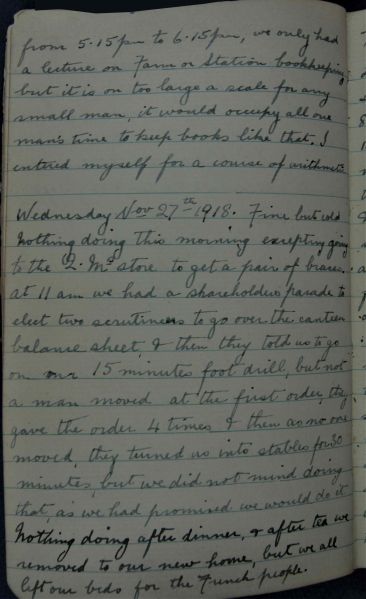 from 5.15pm to 6.15pm, we only had
a lecture on Farm or Station bookkeeping
but it is on too large a scale for any
small man, it would occupy all one
man's time to keep books like that. I
entered myself for a course of arithmetic
Wednesday Nov 27th 1918. Fine but cold
Nothing doing this morning excepting going
to the Q. Ms store to get a pair of braces.
At 11 am we had a shareholders parade to
elect two scrutineers to go over the canteen
balance sheet, & then they told us to go
on our 15 minutes foot drill, but not
a man moved at the first order, they
gave the order 4 times & then as no one
moved, they turned us into stables for 30
minutes, but we did not mind doing
that, as we had promised we would do it
Nothing doing after dinner, & after tea we
removed to our new home, but we all
left our beds for the French people.